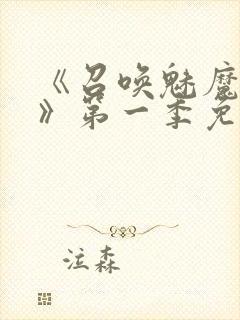 《召唤魅魔
》第一季免
泣森